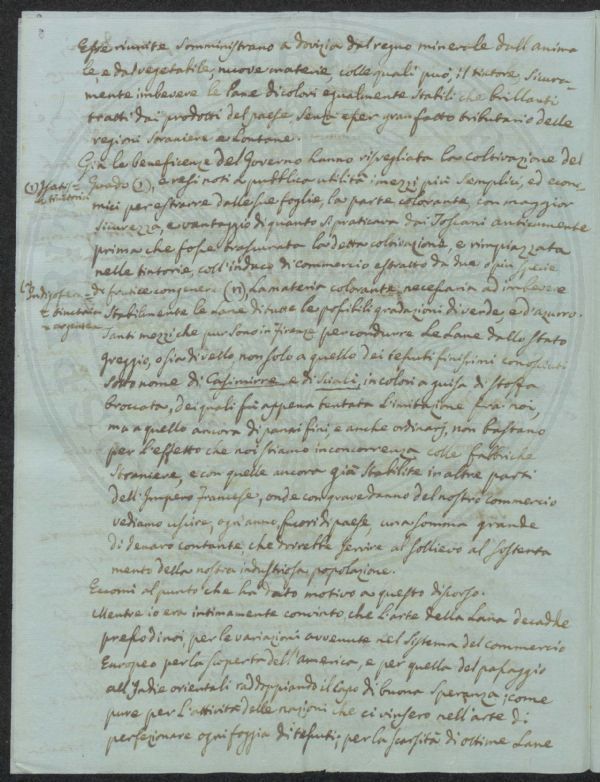 Esse riunite somministrano a dovizia dal regno minerale dall'anima
le e dal vegetabile, nuove materie, colle quali può, il tintore, sicura-
mente imbevere le lane di colori egualmente stabili che brillanti
tratti dai prodotti del paese, senz'esser gran fatto tributario delle
regioni straniere e lontane.
Già le beneficenze del Governo hanno risvegliata la coltivazione del
(1) Isatis
tinctoria
Guado (1), e resi noti a pubblica utilità i mezzi più semplici, ed econo-
mici per estrarre dalle sue foglie, la parte colorante, con maggior
sicurezza, e vantaggio di quanto si praticava dai Toscani anticamente
prima che fosse trascurata la detta coltivazione, e rimpiazzata
nelle tintorie, coll'indaco di commercio estratto da due o più specie
Indigofera
tinctoria
argentea
di frutice congenere (11) La materia colorante necessaria ad imbevere
stabilmente le lane di tutte le possibili gradazioni di verde, e d'azzurro.
Tanti mezzi che pur sono in Firenze per condurre le lane dallo stato
greggio, o sia di vello non solo a quello dei tessuti finissimi conosciuti
sotto nome di Casimirre e di Scialì, in colori a guisa di stoffa
broccata, dei quali fù appena tentata l'imitazione fra noi,
ma a quello ancora di panni fini, e anche ordinarj, non bastano
per l'effetto che noi stiamo in concorrenza colle fabbriche
straniere, e con quelle ancora già stabilite in altre parti
dell'Impero francese, onde con grave danno del nostro commercio
vediamo uscire, ogni anno, fuori di paese, una somma grande
di denaro contante che dovrebbe servire al sollievo al sostenta
mento della nostra industriosa popolazione.
Eccomi al punto che ha dato motivo a questo discorso.
Mentre io era intimamente convinto che l'arte della Lana decadde
presso di noi, per le variazioni avvenute nel sistema del commercio
Europeo per la scoperta dell'america, e per quella del passaggio
all'Indie orientali raddoppiando il Capo di buona Speranza; come
pure per l'attività delle nazioni che ci vinsero nell'arte di
perfezionare ogni foggia di tessuti; per la scarsità di ottime Lane